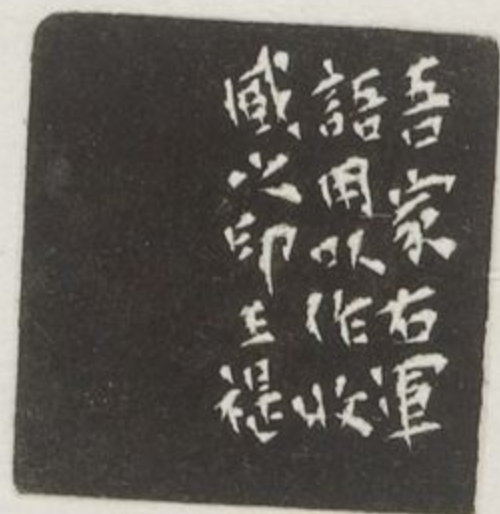 吾家右軍
語用以作收
臧之印王禔